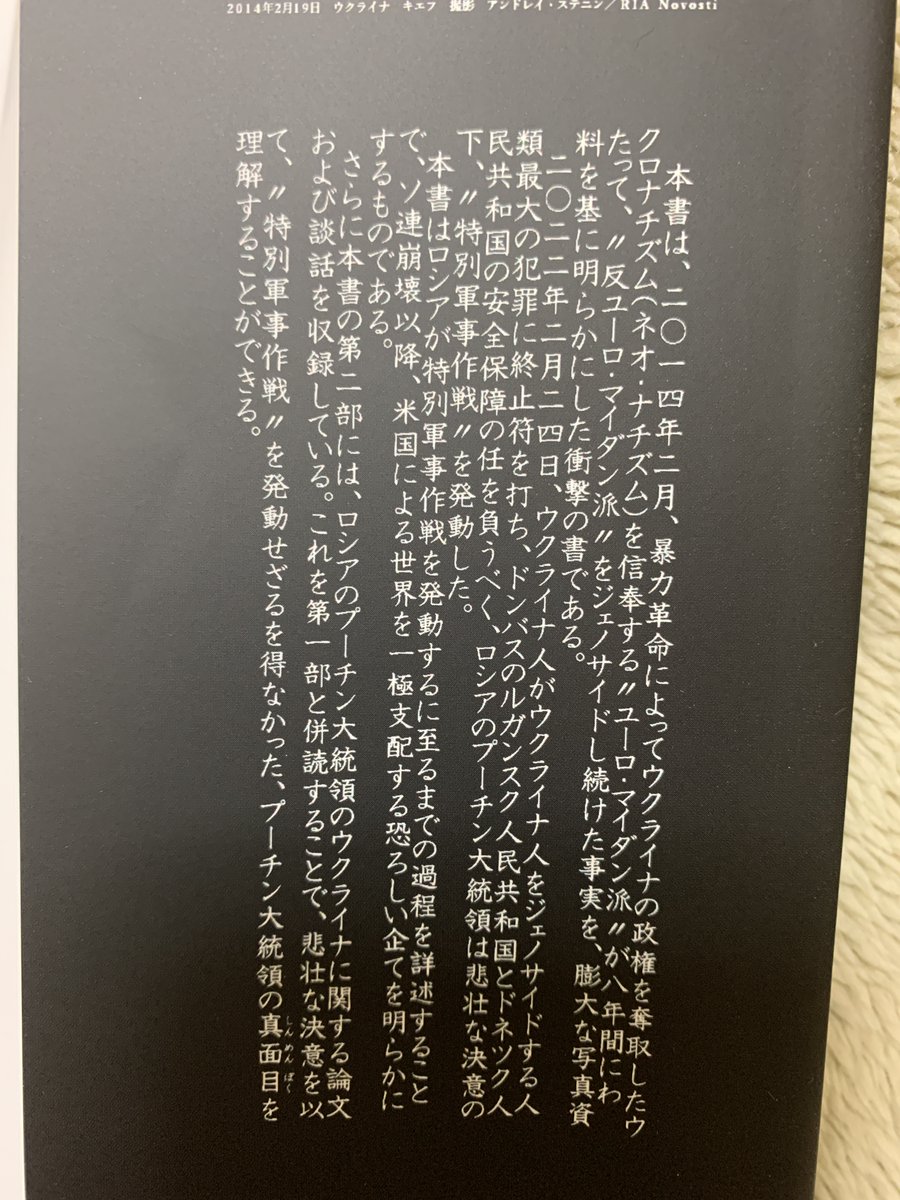 2014年2月19日　ウクライナ　キエフ　撮影　アンドレイ・ステニン／RIA Novosti
本書は、二〇一四年二月、暴力革命によってウクライナの政権を奪取したウ
クロナチズム（ネオ・ナチズム）を信奉する〝ユーロ・マイダン派〟が八年間にわ
たって、〝反ユーロ・マイダン派〟をジェノサイドし続けた事実を、膨大な写真資
料を基に明らかにした衝撃の書である。
二〇二二年二月二四日、ウクライナ人がウクライナ人をジェノサイドする人
類最大の犯罪に終止符を打ち、ドンバスのルガンスク人民共和国とドネツク人
民共和国の安全保障の任を負うべく、ロシアのプーチン大統領は悲壮な決意の
下、〝特別軍事作戦〟を発動した。
本書はロシアが特別軍事作戦を発動するに至るまでの過程を詳述すること
で、ソ連崩壊以降、米国による世界を一極支配する恐ろしい企てを明らかに
するものである。
さらに本書の第二部には、ロシアのプーチン大統領のウクライナに関する論文
および談話を収録している。これを第一部と併読することで、悲壮な決意を以
て、〝特別軍事作戦〟を発動せざるを得なかった、プーチン大統領の真面目を
しんめんぼく
理解することができる。